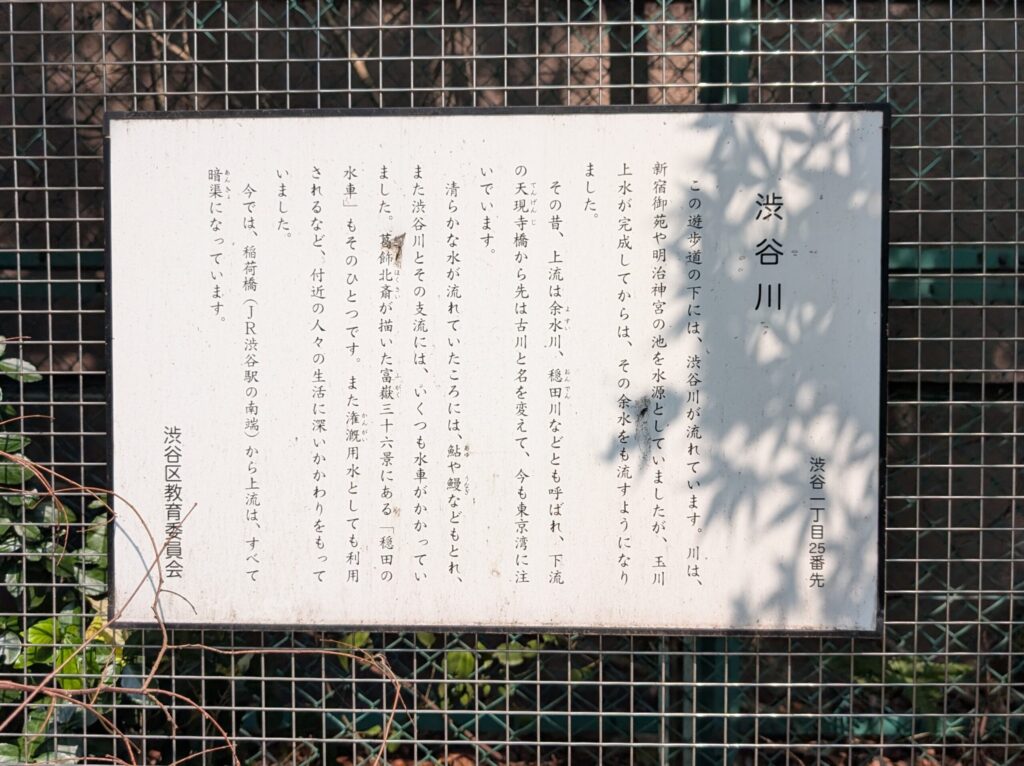 渋谷川
渋谷一丁目25番先
この遊歩道の下には、渋谷川が流れています。川は、
新宿御苑や明治神宮の池を水源としていましたが、玉川
上水が完成してからは、その余水をも流すようになり
ました。
その昔、上流は余水川、穏田川などとも呼ばれ、下流
の天現寺橋から先は古川と名を変えて、今も東京湾に注
いでいます。
清らかな水が流れていたころには、鮎や鰻などもとれ、
また渋谷川とその支流には、いくつも水車がかかってい
ました。葛飾北斎が描いた富嶽三十六景にある「穏田の
水車」もそのひとつです。また潅漑用水としても利用
されるなど、付近の人々の生活に深いかかわりをもって
いました。
今では、稲荷橋(JR渋谷駅の南端)から上流は、すべて
暗渠になっています。
渋谷区教育委員会